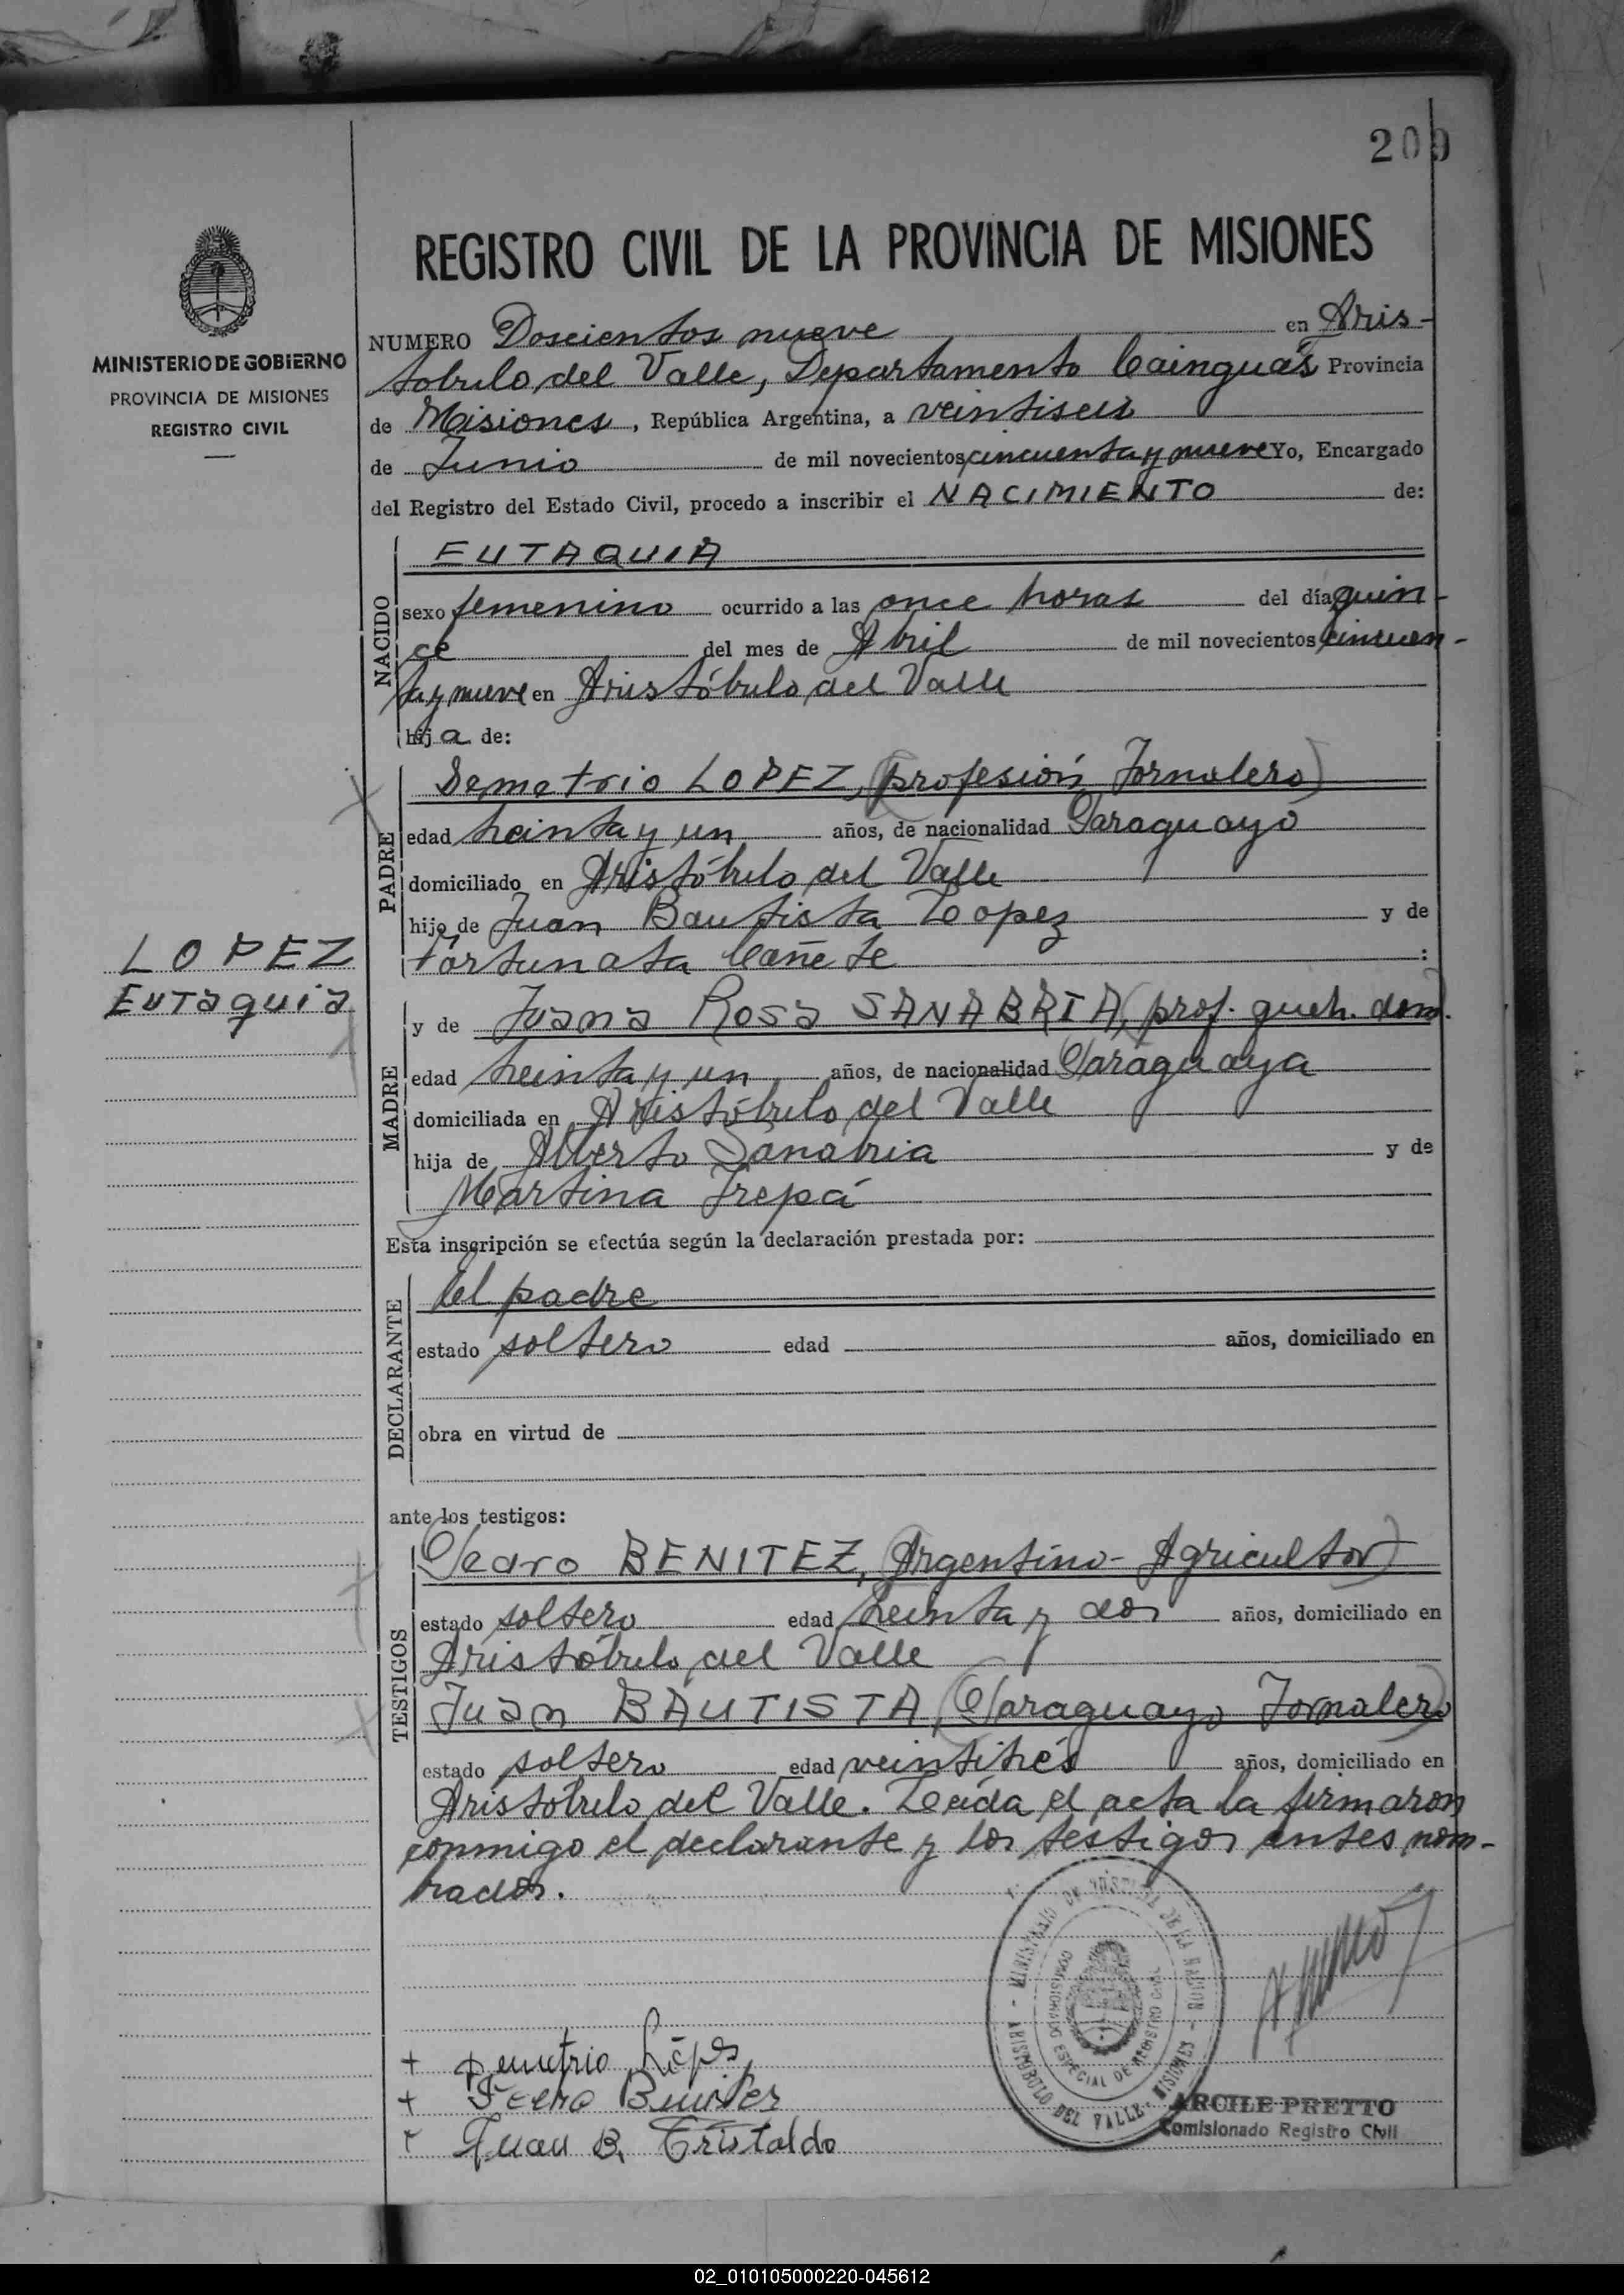 209
MINISTERIO DE GOBIERNO
PROVINCIA DE MISIONES
REGISTRO CIVIL
LOPEZ
Eutaquia
REGISTRO CIVIL DE LA PROVINCIA DE MISIONES
NUMERO Doscientos nueve en Aris-
tobulo del Valle, Departamento Cainguás Provincia
de Misiones, República Argentina, a veintiseis
de Junio de mil novecientos cincuenta y nueve Yo, Encargado
del Registro del Estado Civil, procedo a inscribir el NACIMIENTO de:
NACIDO
EUTAQUIA
sexo femenino ocurrido a las once horas del día quin-
ce del mes de Abril de mil novecientos cincuen-
ta y nueve en Aristóbulo del Valle
hija de:
PADRE
Demetrio LOPEZ, (profesión Jornalero)
edad treinta y un años, de nacionalidad Paraguayo
domiciliado en Aristóbulo del Valle
hijo de Juan Bautista Lopez y de
Fortunata Cañete :
MADRE
y de Juana Rosa SANABRIA, (prof. queh. dom.
edad treinta y un años, de nacionalidad Paraguaya
domiciliada en Aristóbulo del Valle
hija de Alberto Sanabria y de
Martina
Esta inscripción se efectúa según la declaración prestada por:
DECLARANTE
el padre
estado soltero edad años, domiciliado en
obra en virtud de
ante los testigos:
TESTIGOS
Pedro BENITEZ, (Argentino- Agricultor)
estado soltero edad treinta y dos años, domiciliado en
Aristóbulo del Valle
Juan BAUTISTA, (Paraguayo Jornalero)
estado soltero edad veintitrés años, domiciliado en
Aristóbulo del Valle. Leída el acta la firmaron
conmigo el declarante y los testigos antes nom-
brados.
MINISTERIO DE JUSTICIA DE LA NACION
COMISIONADO ESPECIAL DE REGISTRO CIVIL
ARISTOBULO DEL VALLE - MISIONES -
+ Demetrio López
+ Pedro Benitez
+ Juan B. Cristaldo
ARCILE PRETTO
Comisionado Registro Civil
02_010105000220-045612